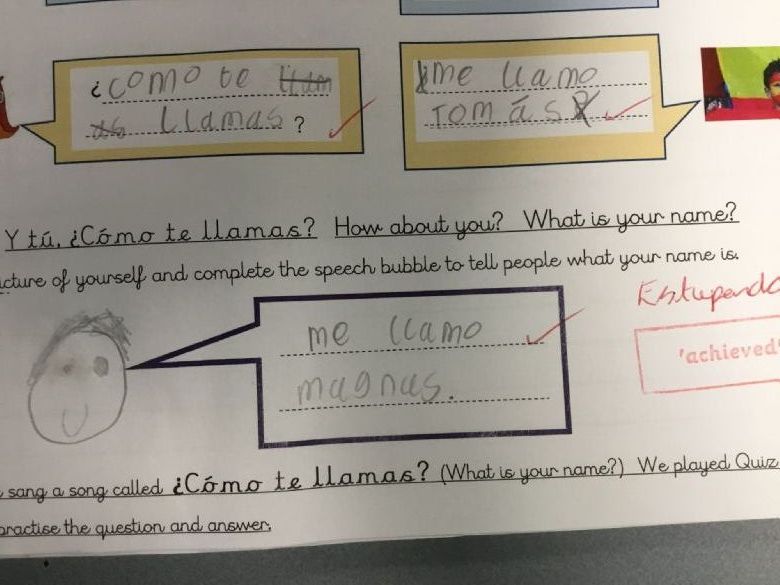 ¿como te
llamas?
me llamo
Tomás
Y tú, ¿Cómo te llamas? How about you? What is your name?
icture of yourself and complete the speech bubble to tell people what your name is.
me llamo
magnus.
Estupendo
'achieved'
sang a song called ¿Cómo te llamas? (What is your name?) We played Quiz
practise the question and answer.